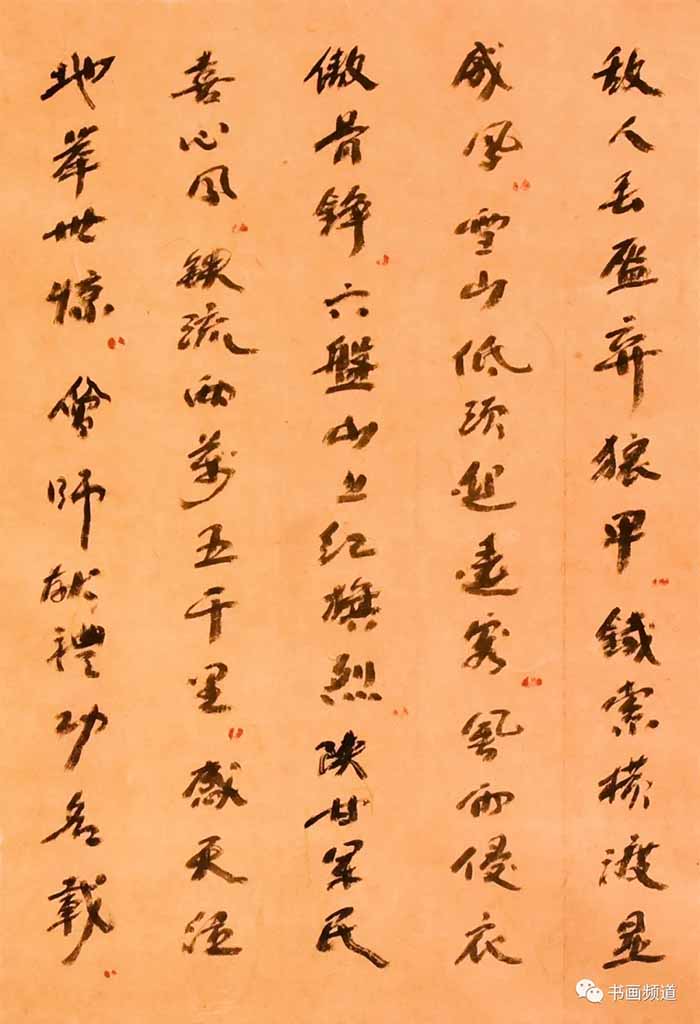 敌人丢盔弃狼甲鐵索横渡显
威风雪山低頭迎遠客風雨侵衣
傲骨铮六盤山上红旗烈陕甘军民
喜心风鐵流两萬五千里感天
地举世惊會師献禮功名載
书画频道